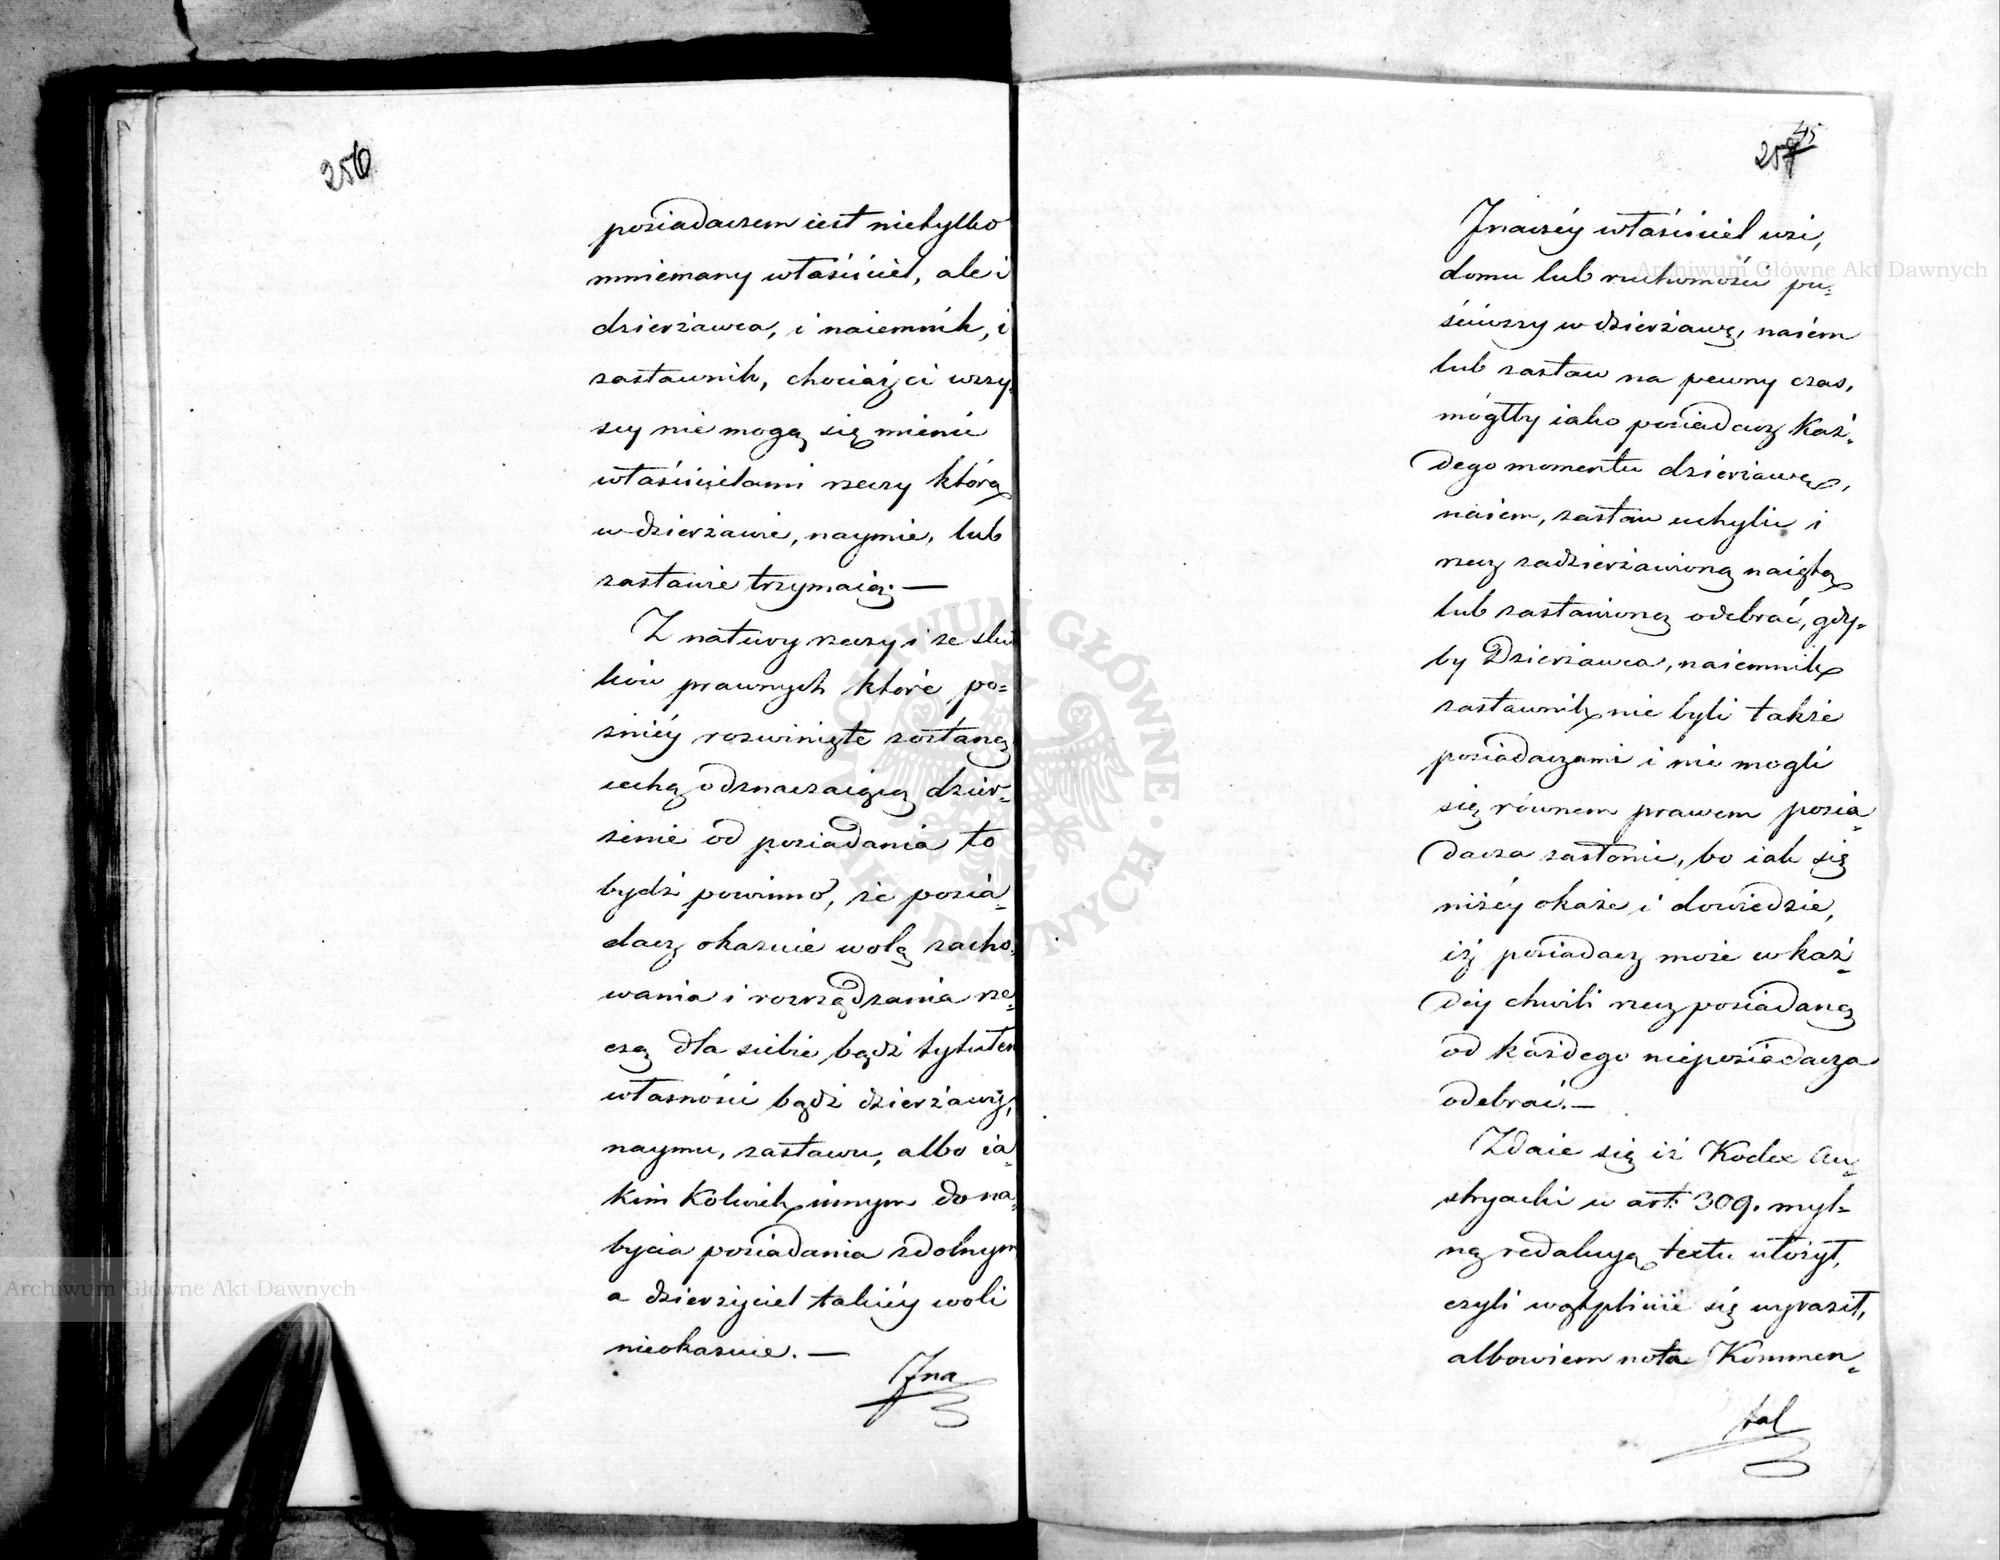 256
posiadaczem iest nietylko
mniemany właściciel, ale i
dzierżawca, i naiemnik, i
zastawnik, chociaż ci wszy-
scy nie mogą się mienić
właścicielami rzeczy którą
w dzierżawie, naymie, lub
zastawie trzymaią; —
Z natury rzeczy i ze skut
ków prawnych które po=
źniéy rozwinięte zostaną
cechą odznaczaiącą dzier=
żenie od posiadania to
bydź powinno, że posia=
dacz okazuie wolą zacho=
wania i rozrządzania rze=
czą dla siebie bądź tytułem
własności bądź dzierżawy,
naymu, zastawu, albo ia=
kim kolwiek innym do na=
bycia posiadania zdolnym
a dzierżyciel takiéy woli
nieokazuie. —
Jna
257
45
Jnaczéy właściciel wsi,
domu lub ruchomości pu=
ściwszy w dzierżawę, naiem
lub zastaw na pewny czas,
mógłby iako posiadacz każ=
dego momentu dzierżawę,
naiem, zastaw uchylić i
rzecz zadzierżawioną naiętą
lub zastawioną odebrać, gdy=
by Dzierżawca, naiemnik
zastawnik nie byli także
posiadaczami i nie mogli
się równem prawem posia=
dacza zasłonić, bo iak się
niżéy okaże i dowiedzie,
iż posiadacz może w każ=
déy chwili rzecz posiadaną
od każdego nieposiadacza
odebrać. —
Zdaie się iż Kodex Au=
stryacki w art: 309. myl=
ną redakcyą textu ułożył,
czyli wątpliwie się wyraził,
albowiem nota Kommen=
tal
Archiwum Główne Akt Dawnych
Archiwum Główne Akt Dawnych
ARCHIWUM GŁÓWNE AKT DAWNYCH